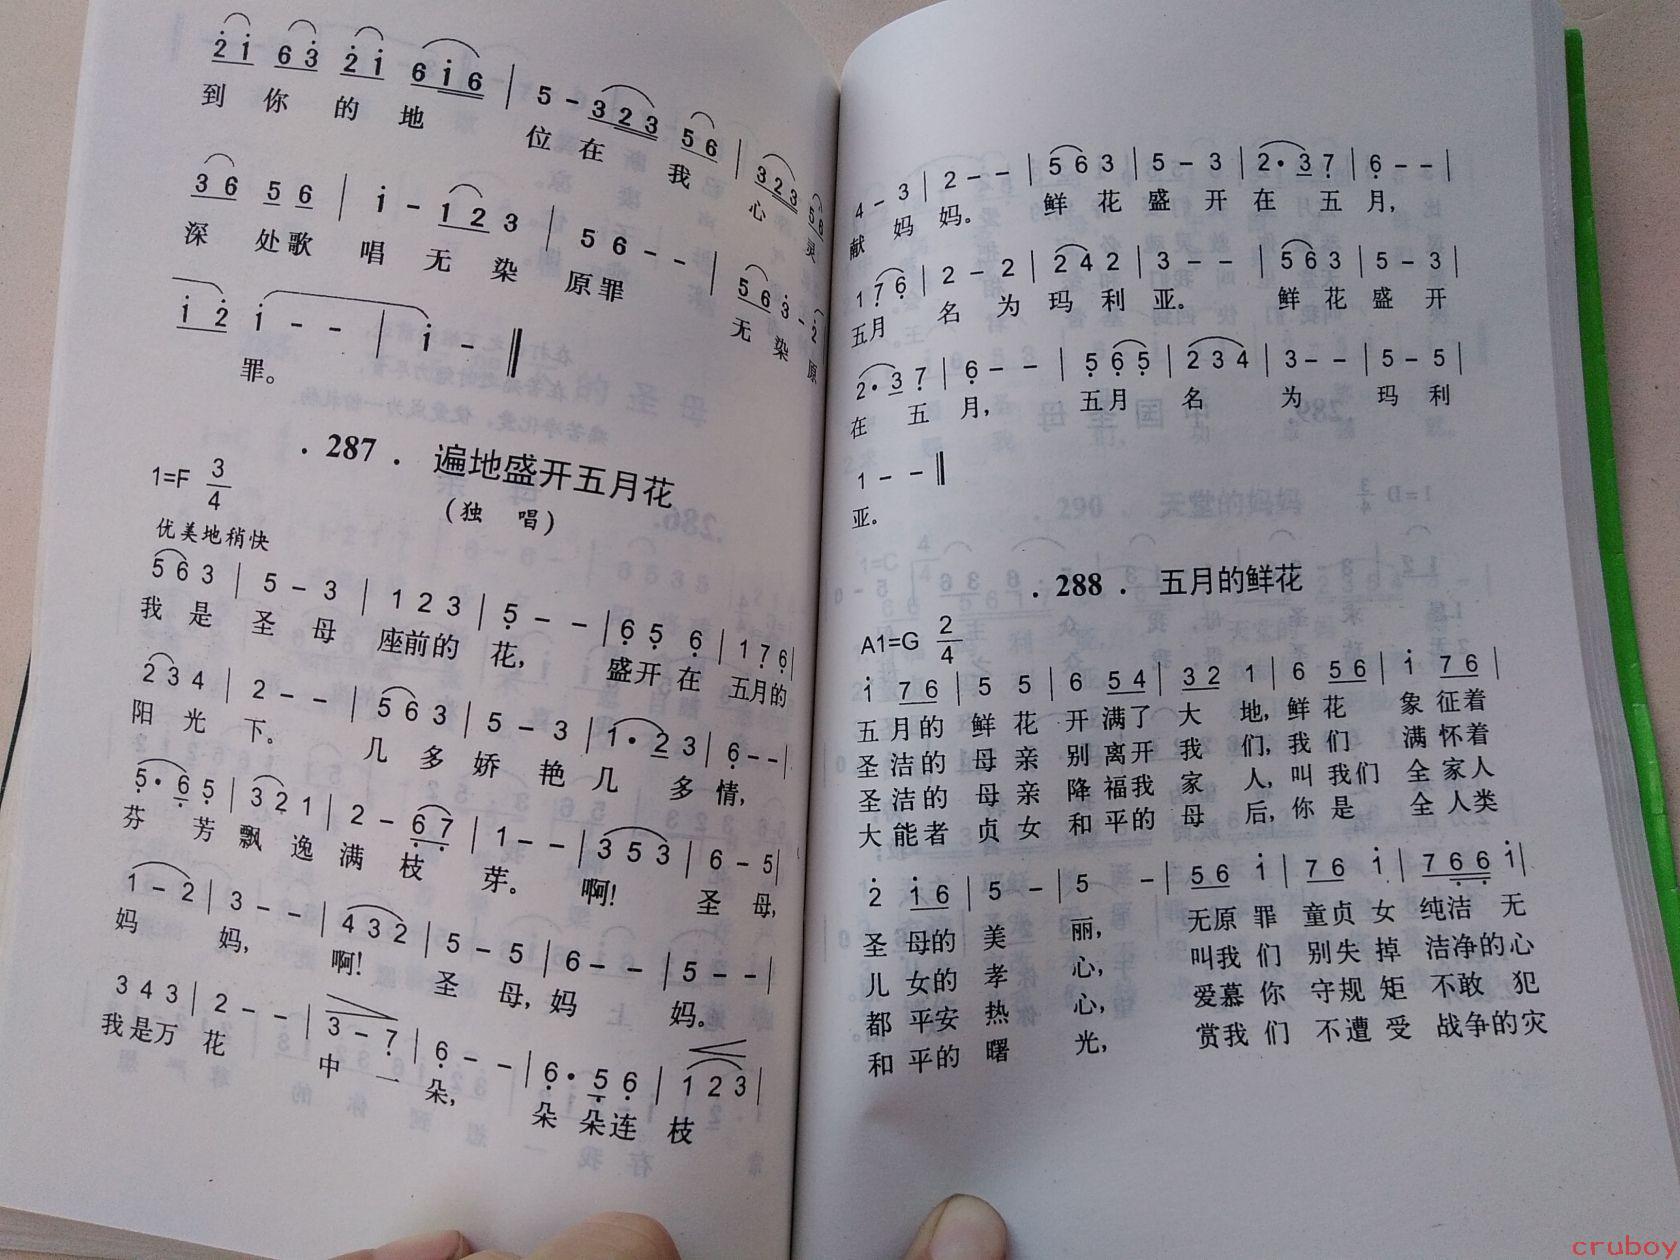 2̇ 1̇ 6 3̇ 2̇ 1̇ 6 1̇ 6 | 5 - 3 2 3 5 6 | 3 2 3 5 6
到 你 的 地 位 在 我 心 灵
3 6 5 6 | 1̇ - 1 2 3 | 5 6 - - | 5 6 3̇ - 2̇
深 处 歌 唱 无 染 原 罪 无 染 原
1̇ 2̇ 1̇ - - | 1̇ - ‖
罪。
. 287 . 遍地盛开五月花
(独 唱)
1=F 3/4
优美地稍快
5 6 3 | 5 - 3 | 1 2 3 | 5̣ - - | 6̣ 5̣ 6̣ | 1 7̣ 6̣ |
我 是 圣 母 座前的 花, 盛开 在 五月的
2 3 4 | 2 - - | 5 6 3 | 5 - 3 | 1 · 2 3 | 6̣ - - |
阳 光 下。 几 多 娇 艳 几 多 情,
5̣ · 6̣ 5̣ | 3 2 1 | 2 - 6̣ 7̣ | 1 - - | 3 5 3 | 6 - 5 |
芬 芳 飘 逸 满 枝 芽。 啊! 圣 母,
1 - 2 | 3 - - | 4 3 2 | 5 - 5 | 6 - - | 5 - - |
妈 妈, 啊! 圣 母, 妈 妈。
3 4 3 | 2 - - | 3 - 7̣ | 6̣ - - | 6̣ · 5̣ 6̣ | 1 2 3 |
我是万 花 中 一 朵, 朵 朵连 枝
4 - 3 | 2 - - | 5 6 3 | 5 - 3 | 2 · 3 7̣ | 6̣ - - |
献 妈 妈。 鲜 花 盛 开 在 五 月,
1 7̣ 6̣ | 2 - 2 | 2 4 2 | 3 - - | 5 6 3 | 5 - 3 |
五月 名 为 玛 利 亚。 鲜 花 盛 开
2 · 3 7̣ | 6̣ - - | 5̣ 6̣ 5̣ | 2 3 4 | 3 - - | 5 - 5 |
在 五 月, 五月 名 为 玛 利
1 - - ‖
亚。
. 288 . 五月的鲜花
A1=G 2/4
1̇ 7 6 | 5 5 | 6 5 4 | 3 2 1 | 6 5 6 | 1̇ 7 6 |
五 月的 鲜 花 开 满了 大 地, 鲜 花 象 征着
圣 洁的 母 亲 别 离开 我 们, 我 们 满 怀着
圣 洁的 母 亲 降 福我 家 人, 叫 我们 全 家人
大 能者 贞 女 和 平的 母 后, 你 是 全 人类
2̇ 1̇ 6 | 5 - | 5 - | 5 6 1̇ | 7 6 1̇ | 7 6̣ 6̣ 1̇ |
圣 母的 美 丽, 无原 罪 童贞 女 纯洁 无
儿 女的 孝 心, 叫我 们 别失 掉 洁净的心
都 平安 热 心, 爱慕 你 守规 矩 不敢 犯
和 平的 曙 光, 赏我 们 不遭 受 战争的灾
cruboy